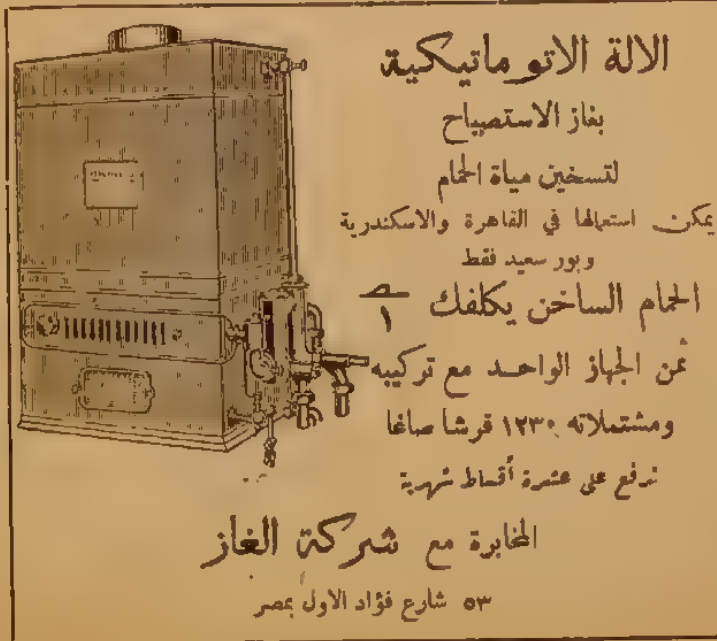 الالة الاتوماتيكية
بغاز الاستصباح
لتسخين مياة الحمام
يمكن استعمالها في القاهرة والاسكندرية
وبور سعيد فقط
الحمام الساخن يكلفك ١ صـ
ثمن الجهاز الواحد مع تركيبه
ومشتملاته ١٢٣٠ قرشا صاغا
تدفع على عشرة أقساط شهرية
المخابرة مع شركة الغاز
٥٣ شارع فؤاد الاول بمصر